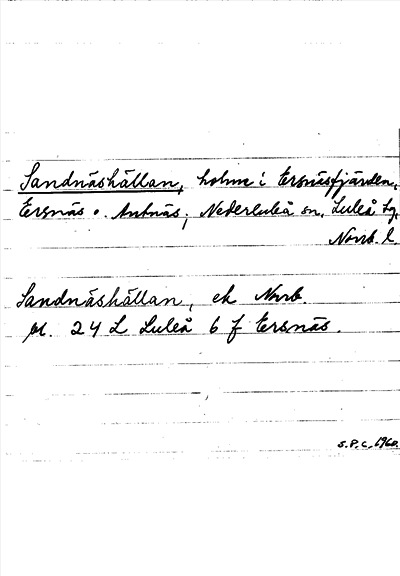 Sandnäshällan, holme i Ersnäsfjärden,
Ersnäs o. Antnäs, Nederluleå sn, Luleå tg,
Norrb. l.
Sandnäshällan, ek Norrb.
bl. 24 L Luleå 6 f Ersnäs.
S.P.C. 1960.